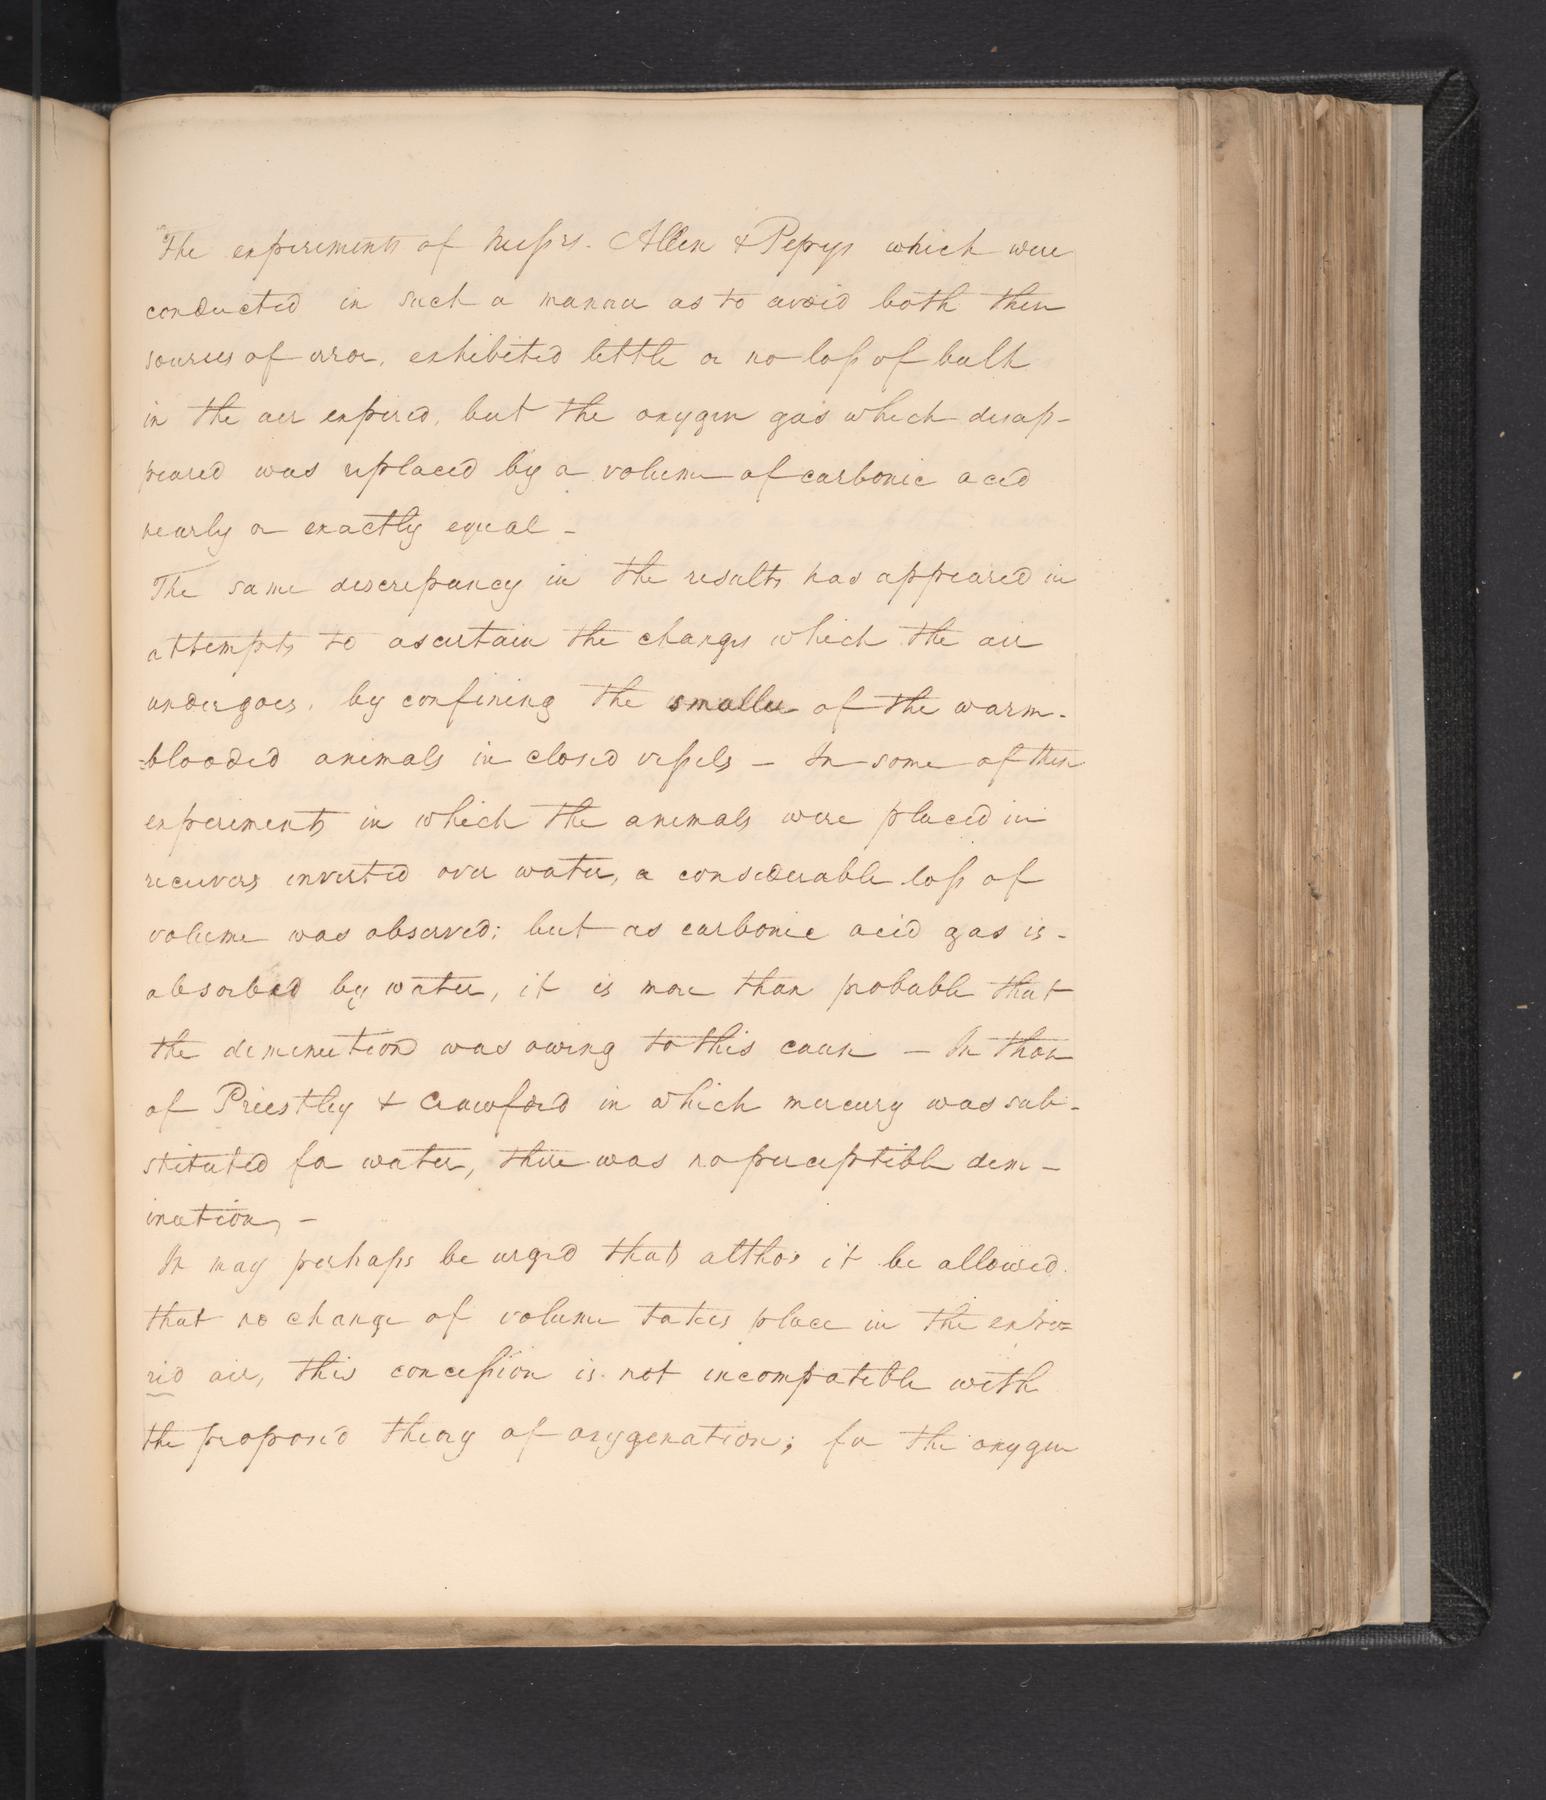 "The experiments of Messrs. Allen & Pepys which were
conducted in such a manner as to avoid both these
sources of error, exhibited little or no loss of bulk
in the air expired, but the oxygen gas which disap-
peared was replaced by a volume of carbonic acid
nearly or exactly equal -
The same discrepancy in the results has appeared in
attempts to ascertain the changes which the air
undergoes, by confining the smaller of the warm-
blooded animals in closed vessels - In some of these
experiments in which the animals were placed in
receivers inverted over water, a considerable loss of
volume was observed; but as carbonic acid gas is -
absorbed by water, it is more than probable that
the diminution was owing to this cause - In those
of Priestley & Crawford in which mercury was sub-
stituted for water, there was no perceptible dim-
inution, -
It may perhaps be urged that altho' it be allowed
that no change of volume takes place in the expi=
red air, this concession is not incompatible with
the proposed theory of oxygenation; for the oxygen